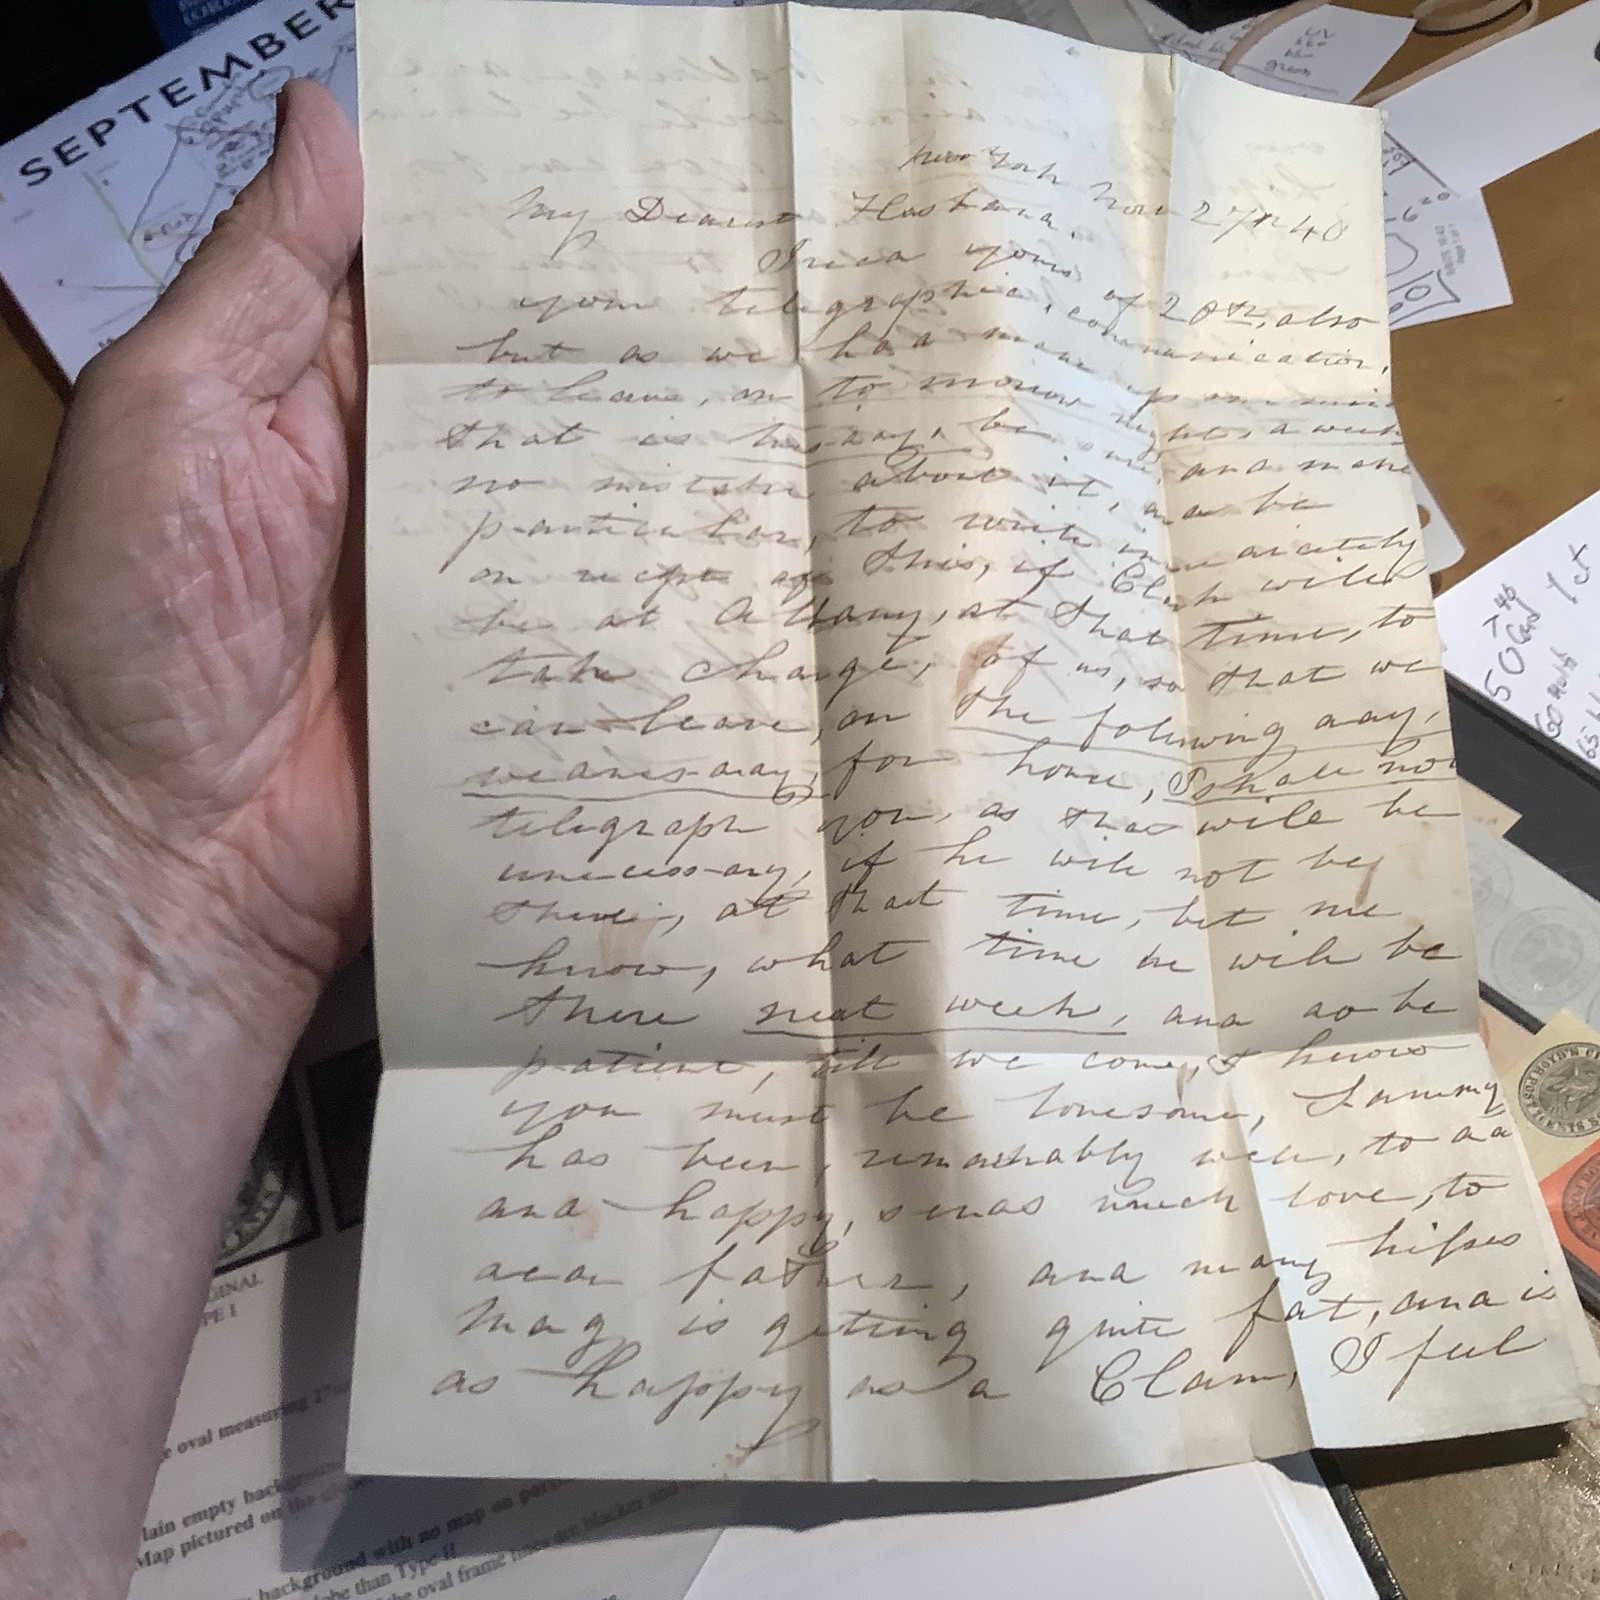 SEPTEMBER
New York Nov 27th 40
My Dearest Husband.
I recd yours of 20th, also
your telegraphic, communication,
but as we had made up our mind
to leave, on to morrow night, a week
that is tuesday, be sure and make
no mistake about it, and be
particular, to write immediately
on recpt of this, if Clark will
be at Albany, at that time, to
take charge, of us, so that we
can leave, on the following day,
wednesday, for home, I shall not
telegraph you, as that will be
unecessary, if he will not be
there, at that time, let me
know, what time he will be
there next week, and do be
patient, till we come, I know
you must be lonesome, Sammy
has been, remarkably well, to day
and happy, sends much love, to
dear father, and many kisses
Mag is getting quite fat, and is
as happy as a Clam, I feel
GINAL
PE I
e oval measuring
lain empty background
Map pictured on the
background with no map on
obe than Type II
the oval frame lines are blacker and
50 Card 1 ct